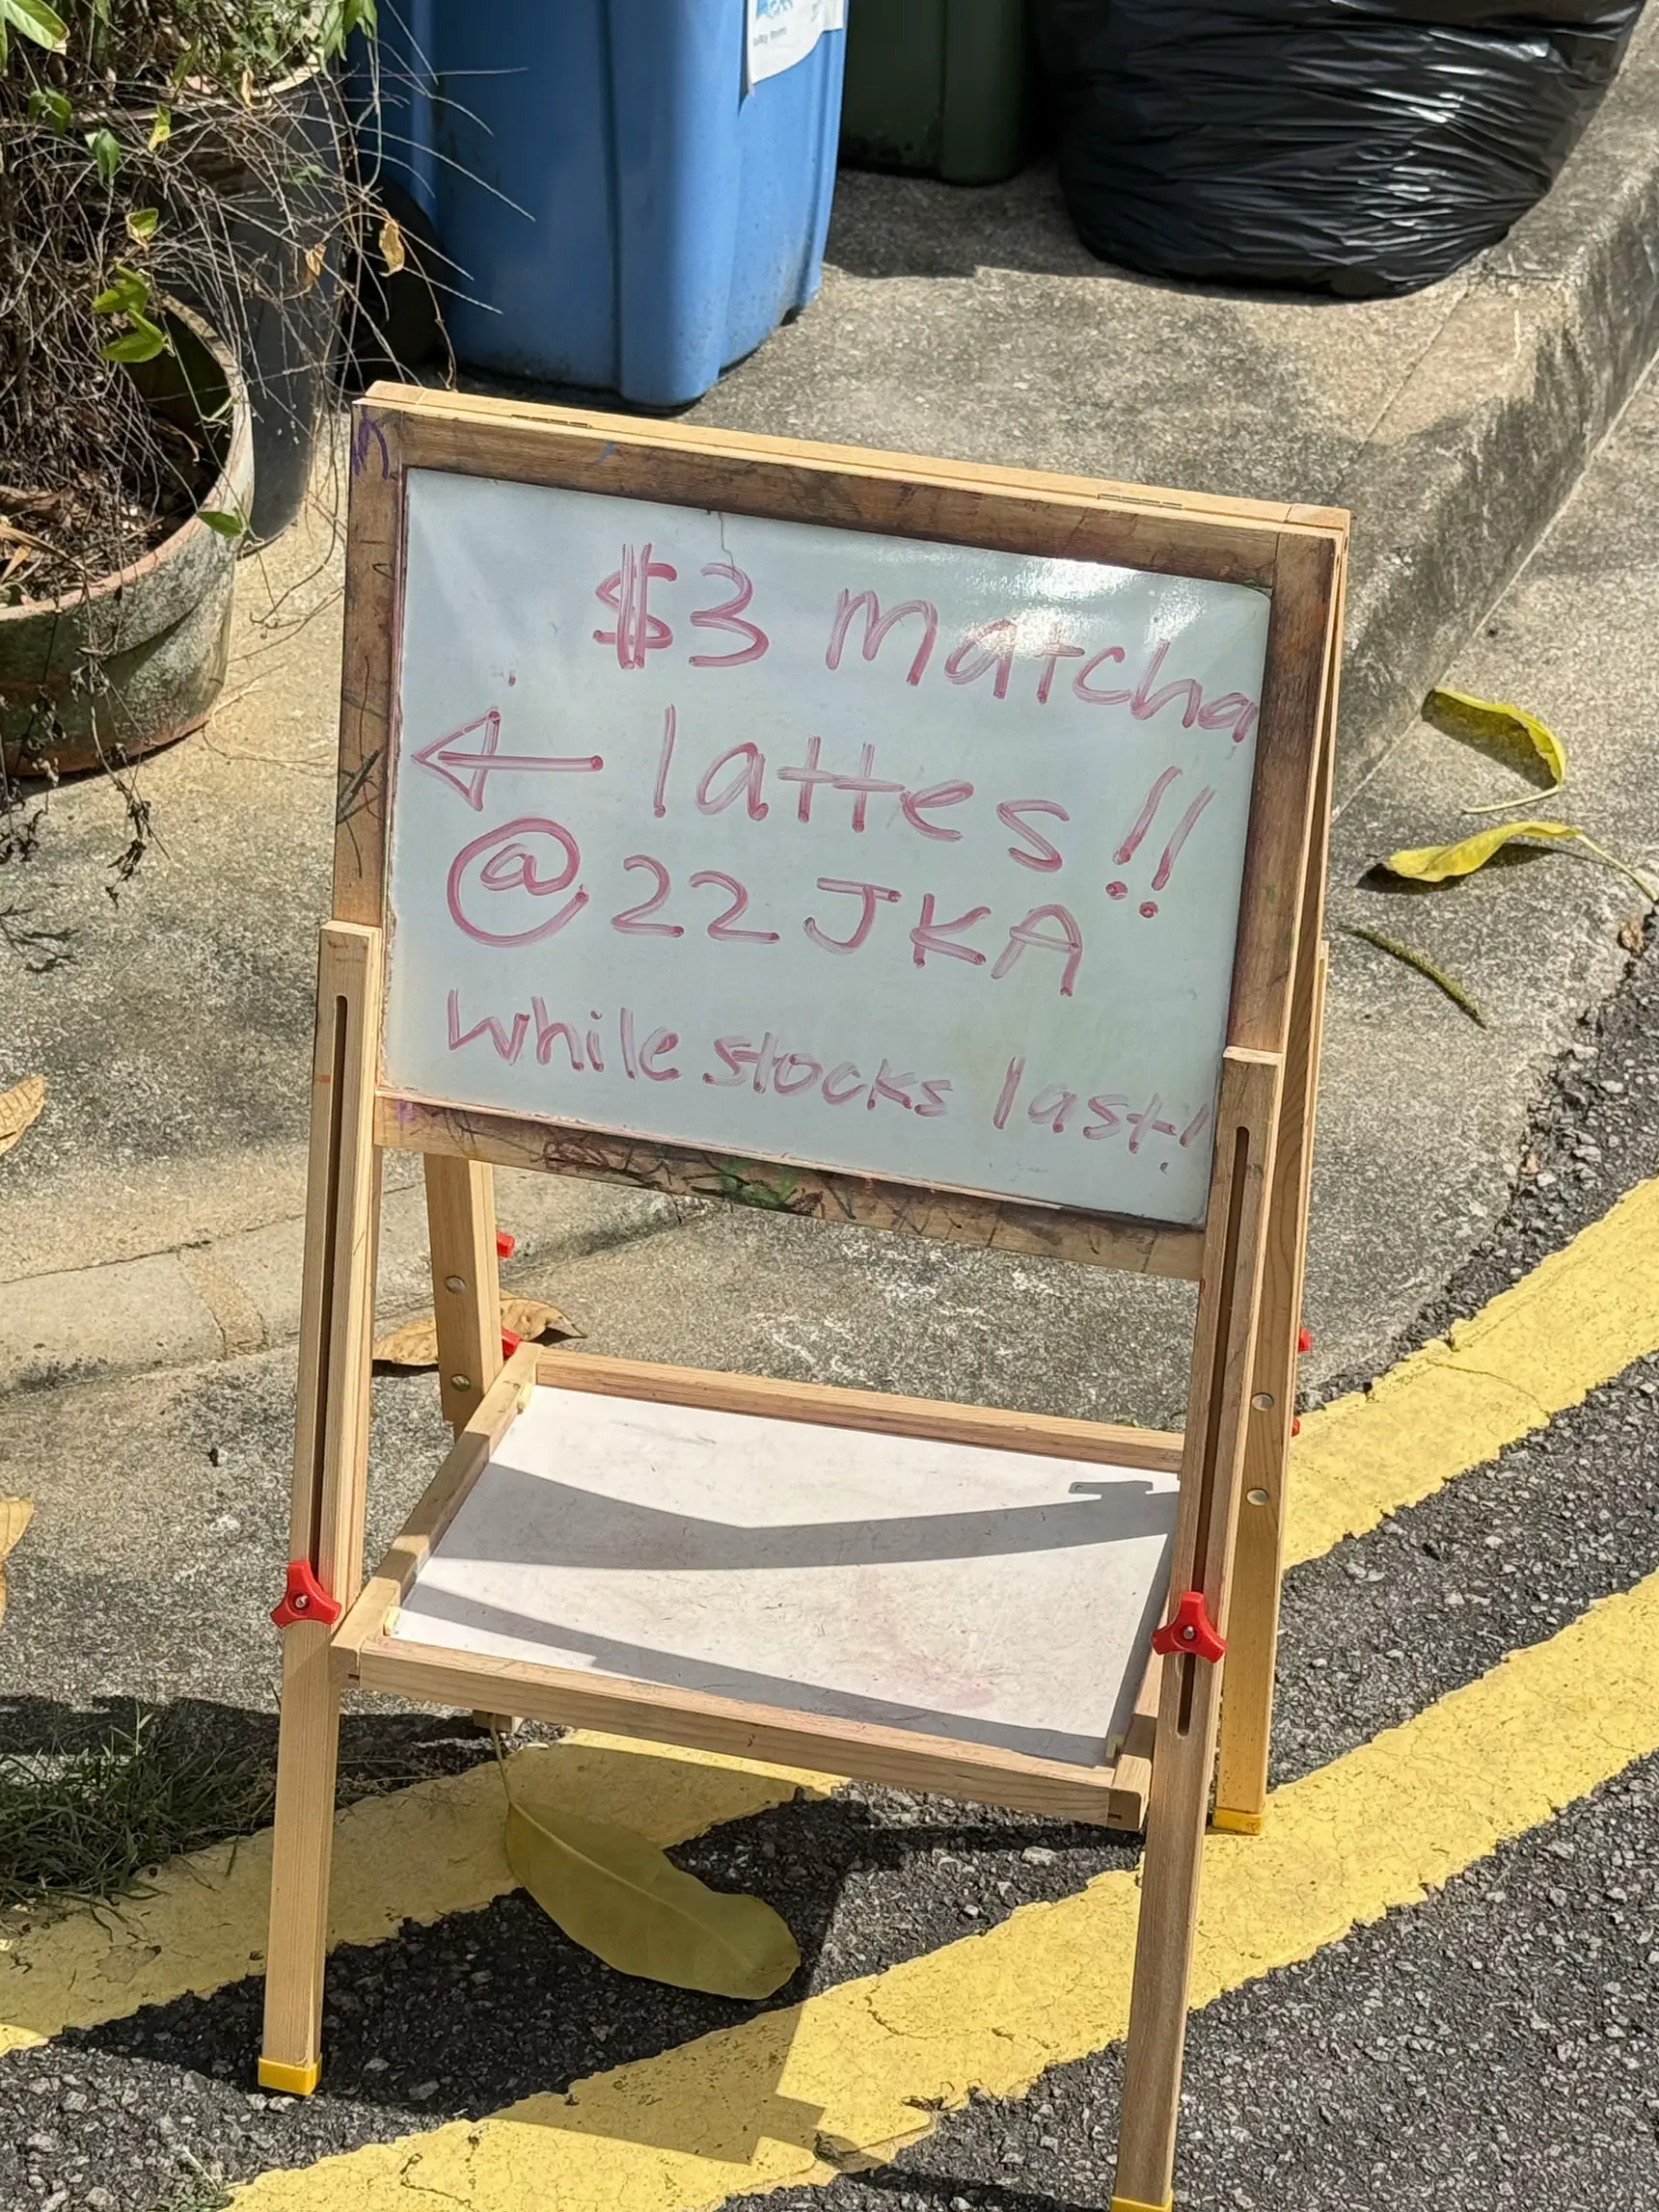 $3 Matcha
← lattes!!
@ 22 JKA
While stocks last!